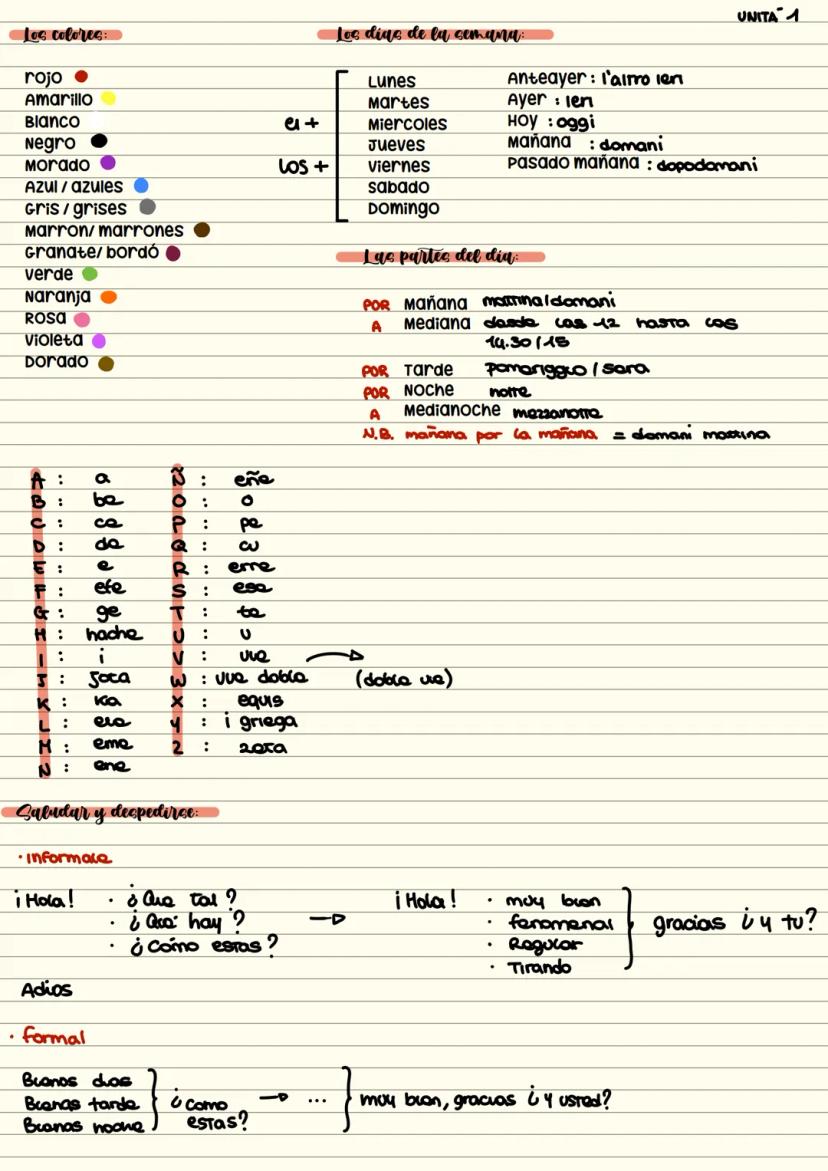 UNITA' 1
Los colores:
rojo
Amarillo
Blanco
Negro
Morado
Azul / azules
Gris / grises
Marron/ marrones
Granate/ bordó
verde
Naranja
Rosa
violeta
Dorado
Los días de la semana:
el +
los +
Lunes
Martes
Miercoles
Jueves
viernes
sabado
Domingo
Anteayer : l'altro ieri
Ayer : ieri
Hoy : oggi
Mañana : domani
Pasado mañana : dopodomani
Las partes del día:
POR Mañana mattina/domani
A Mediana desde las 12 hasta las
14.30 / 15
POR Tarde Pomeriggio / sera
POR Noche notte
A Medianoche mezzanotte
N.B. mañana por la mañana = domani mattina
A : a
B : be
C : ce
D : de
E : e
F : efe
G : ge
H : hache
I : i
J : Jota
K : ka
L : ele
M : eme
N : ene
Ñ : eñe
O : o
P : pe
Q : cu
R : erre
S : ese
T : te
U : u
V : uve
W : uve doble (doble ve)
X : equis
Y : i griega
Z : zeta
Saludar y despedirse:
· informale
¡Hola! · ¿Que tal?
· ¿Qué hay?
· ¿Cómo estas?
¡Hola! · muy bien
· fenomenal
· Regular
· Tirando
gracias ¿y tu?
Adios
· formal
Buenos dias
Buenas tarde
Buenas noche
¿como
estas?
...
muy bien, gracias ¿y usted?